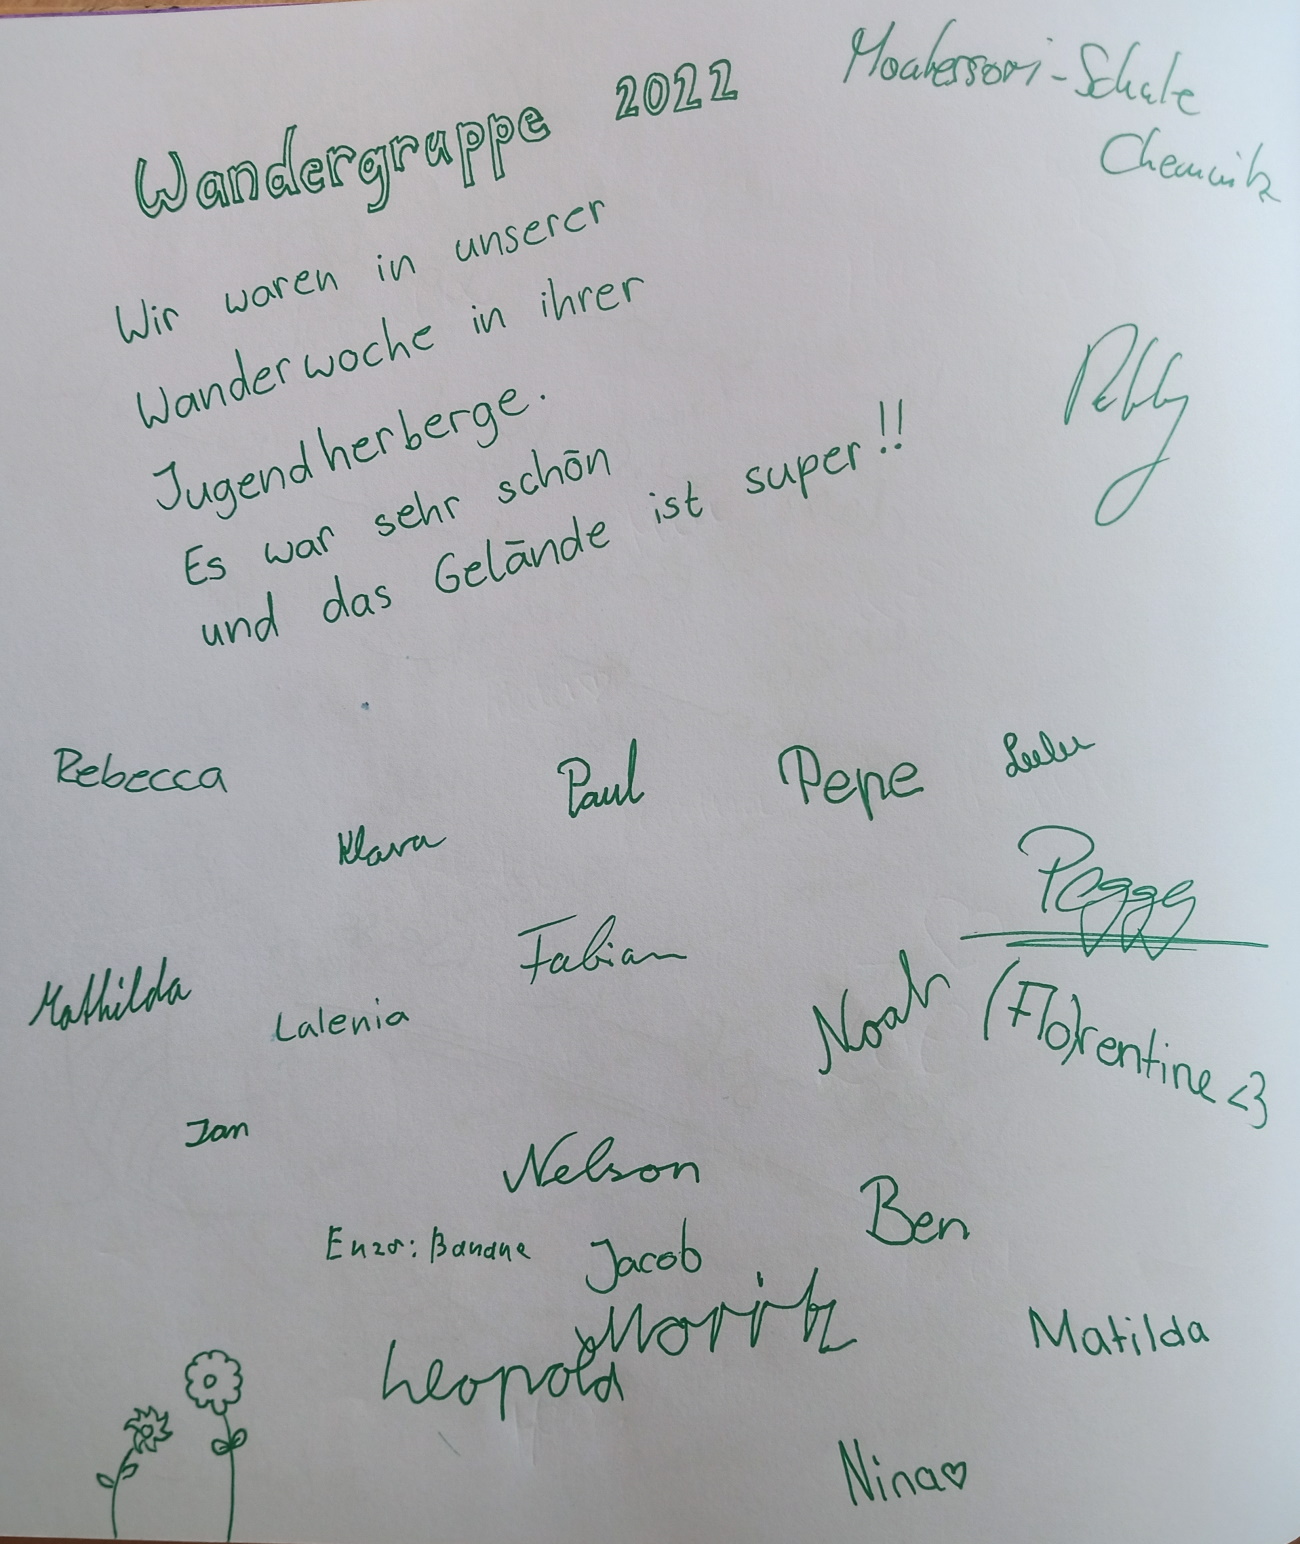 Wandergruppe 2022
Montessori-Schule
Chemnitz
Wir waren in unserer
Wanderwoche in ihrer
Jugendherberge.
Es war sehr schön
und das Gelände ist super!!
Rebecca
Klara
Paul
Pepe
Lulu
Peggy
Mathilda
Lalenia
Fabian
Noah
(Flo)rentine <3
Jan
Nelson
Ben
Enzo: Banane
Jacob
Moritz
Leopold
Matilda
Nina♡